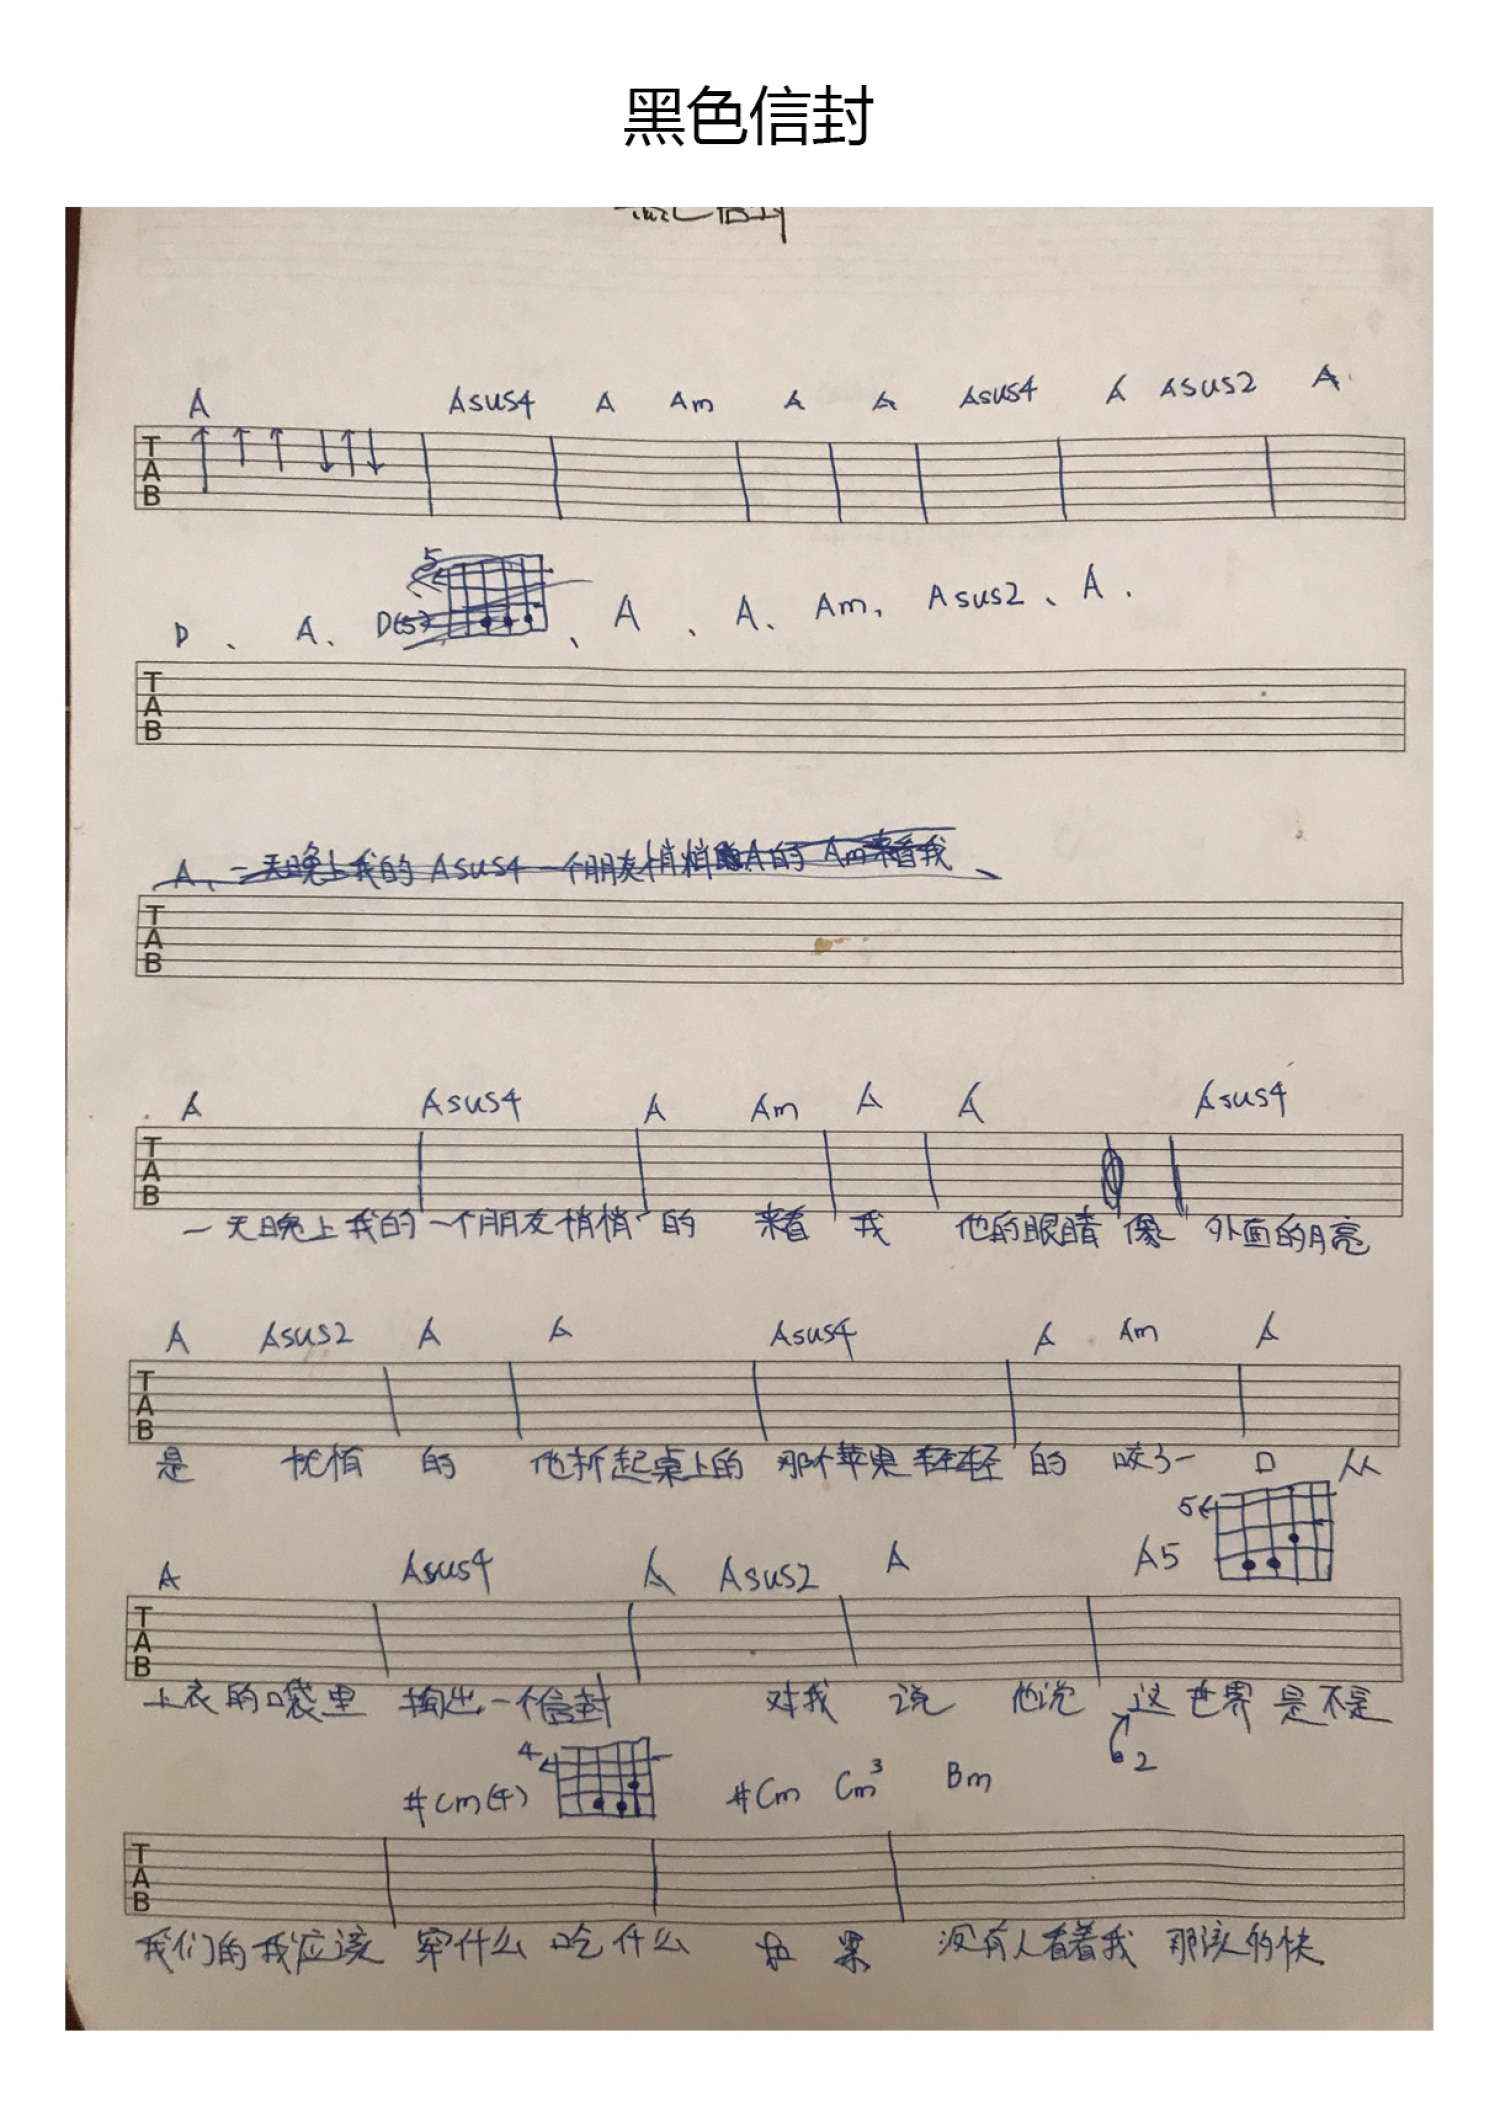 黑色信封
A Asus4 A Am A A Asus4 A Asus2 A
T
A
B
5
D、 A、 D(5) 、 A 、 A、 Am、 Asus2、 A.
T
A
B
A、一天晚上我的 Asus4 一个朋友悄悄 A的 Am来看我、
T
A
B
A Asus4 A Am A A Asus4
T
A
B
一天晚上我的一个朋友悄悄的 来看 我 他的眼睛像 外面的月亮
A Asus2 A A Asus4 A Am A
T
A
B
是 忧悒 的 他拆起桌上的 那个苹果轻轻的 咬了一口 从
5
A Asus4 A Asus2 A A5
T
A
B
上衣的口袋里 掏出一个信封 对我 说 他说 这世界是不是
2
4
#Cm(4) #Cm Cm3 Bm
T
A
B
我们的我应该 穿什么 吃什么 如果 没有人看着我 那该的快